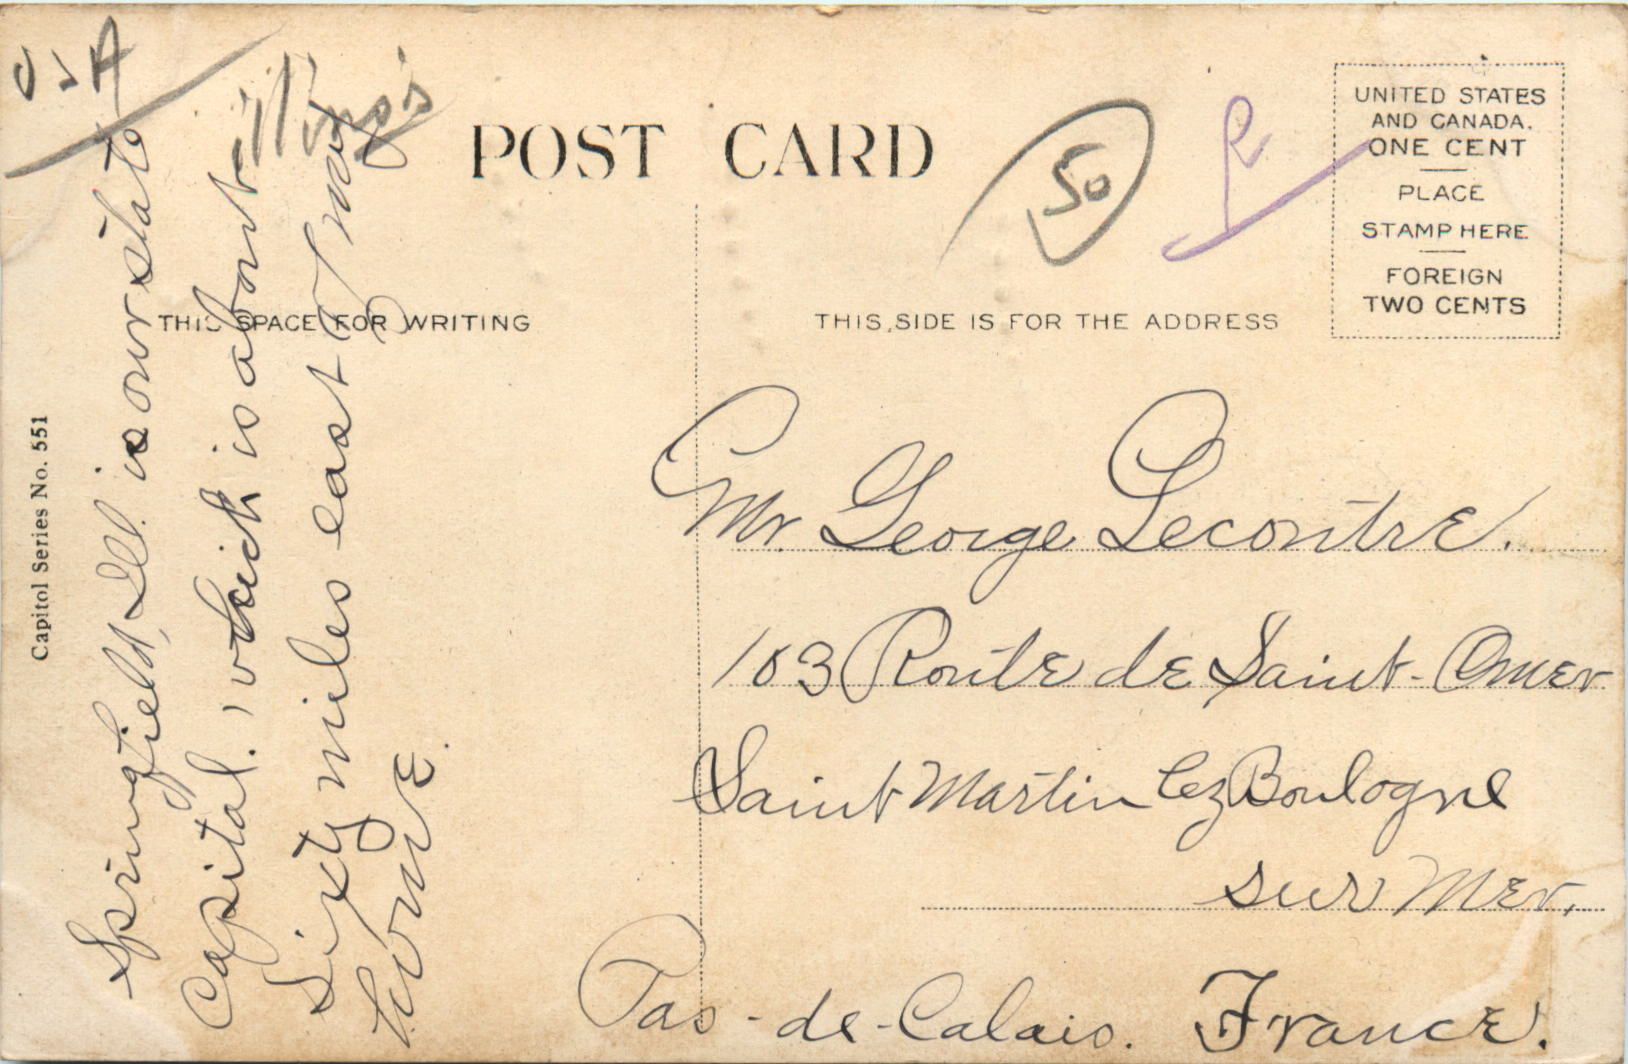 USA
illinois
POST CARD
50
UNITED STATES
AND CANADA.
ONE CENT
PLACE
STAMP HERE
FOREIGN
TWO CENTS
THIS SPACE FOR WRITING
THIS SIDE IS FOR THE ADDRESS
Capitol Series No. 551
Springfield, Ill. is our state
Capital, which is about
Sixty miles east of my
home.
Mr. George Lecontre.
103 Route de Saint-Omer
Saint Martin lez Boulogne
sur Mer.
Pas-de-Calais. France.